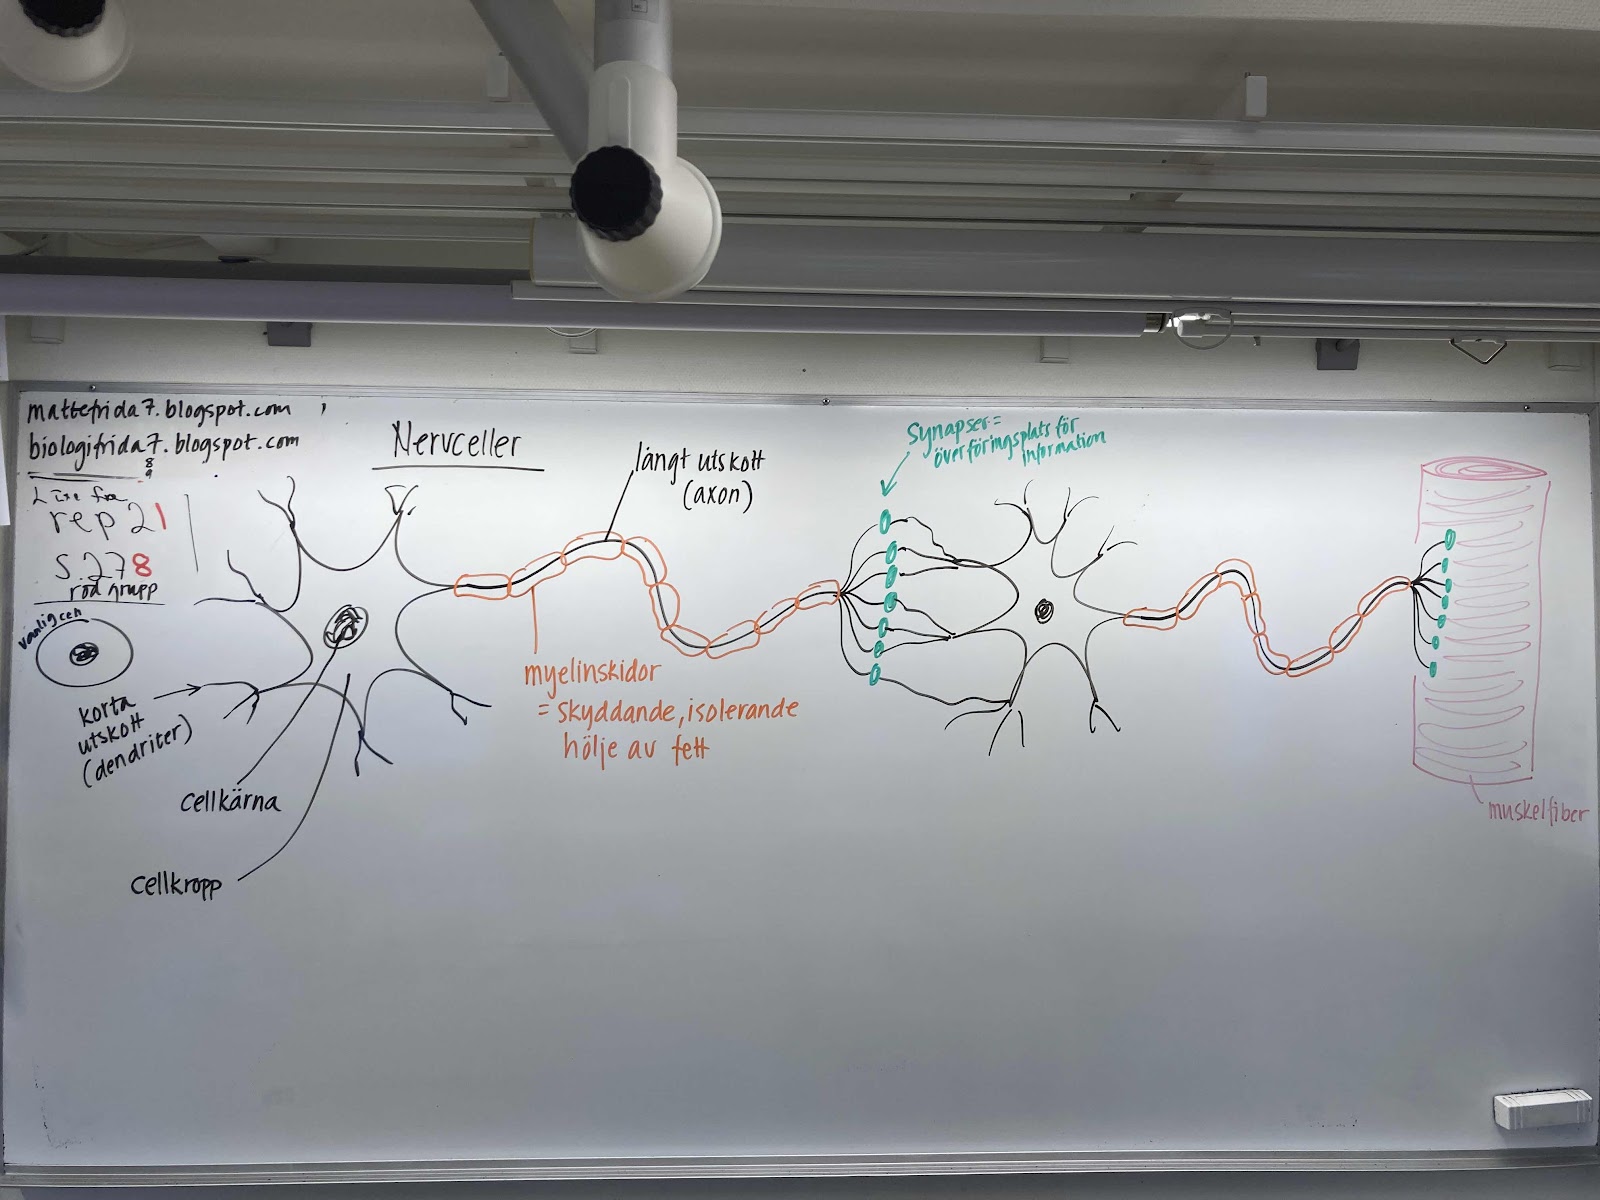 mattefrida7.blogspot.com
biologifrida7.blogspot.com
8
9
rep 21
s. 278
röd grupp
vanlig cell
korta
utskott
(dendriter)
cellkärna
cellkropp
Nervceller
långt utskott
(axon)
myelinskidor
= skyddande, isolerande
hölje av fett
Synapser =
överföringsplats för
information
muskelfiber